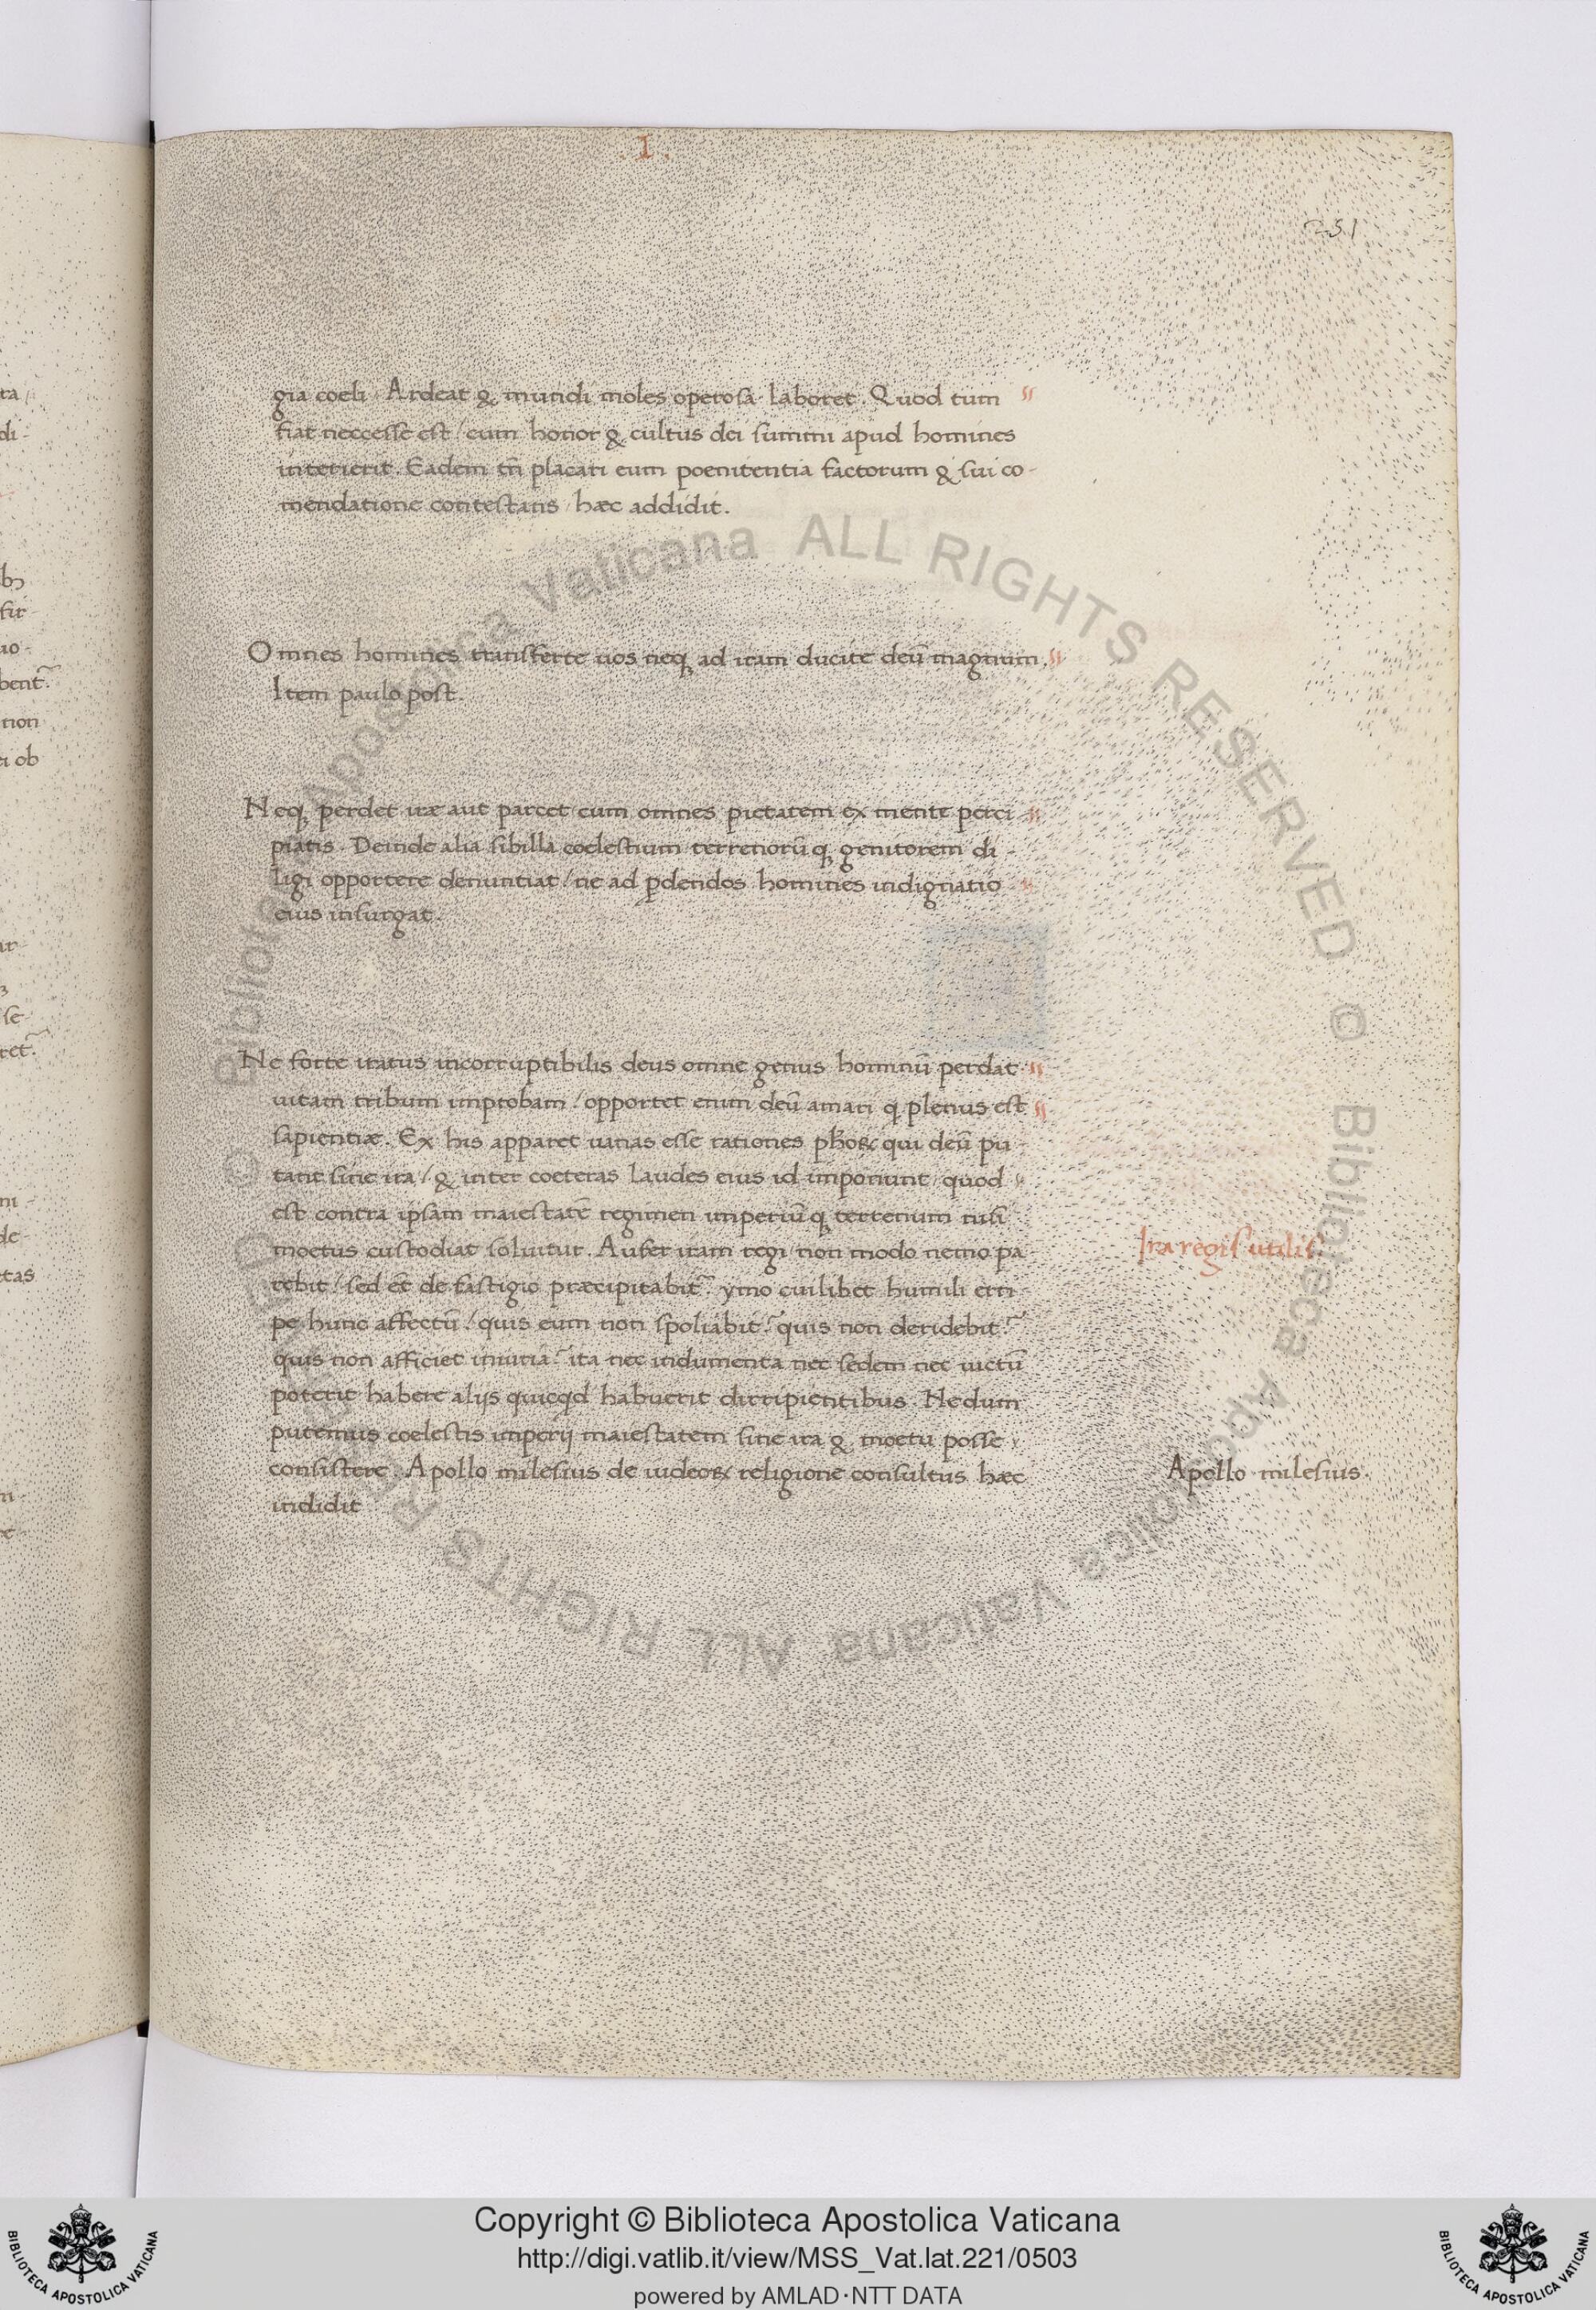 . I .
251
gia coeli. Ardeat & mundi moles operosa laboret. Quod tum
fiat neccesse est / cum honor & cultus dei summi apud homines
interierit. Eadem tn̄ placari eum poenitentia factorum & sui co-
mendatione contestans / hæc addidit.
Omnes homines transferte uos neqꝫ ad iram ducite deū magnum.
Item paulo post.
Neqꝫ perdet iræ aut parcet cum omnes pietatem ex mente perci-
piatis. Deinde alia sibilla coelestium terrenorūqꝫ genitorem di-
ligi opportere denuntiat / ne ad ꝑdendos homines indignatio
eius insurgat.
Ne forte iratus incorruptibilis deus omne genus hominū perdat
uitam tribum improbam / opportet enim deū amari q plenus est
sapientiæ. Ex his apparet uanas esse rationes ph̄oꝝ qui deū pu-
tant sine ira / & inter coeteras laudes eius id imponunt / quod
est contra ipsam maiestatē regimen imperiūqꝫ terrenum nisi
moetus custodiat soluitur. Aufer iram regi / non modo nemo pa-
rebit / sed et̄ de fastigio præcipitabit᷑. ymo cuilibet humili erri-
pe hunc affectū / quis eum non spoliabit? quis non deridebit?
quis non afficiet iniuria? ita nec indumenta nec sedem nec uictū
poterit habere alijs quicqd habuerit dirripientibus. Nedum
putemus coelestis imperij maiestatem sine ira & moetu posse
consistere. Apollo milesius de iudeoꝝ religione consultus hæc
indidit
Ira regis utilis.
Apollo milesius.
© Biblioteca Apostolica Vaticana ALL RIGHTS RESERVED © Biblioteca Apostolica Vaticana ALL RIGHTS RESERVED
Copyright © Biblioteca Apostolica Vaticana
http://digi.vatlib.it/view/MSS_Vat.lat.221/0503
powered by AMLAD·NTT DATA
BIBLIOTECA APOSTOLICA VATICANA
BIBLIOTECA APOSTOLICA VATICANA